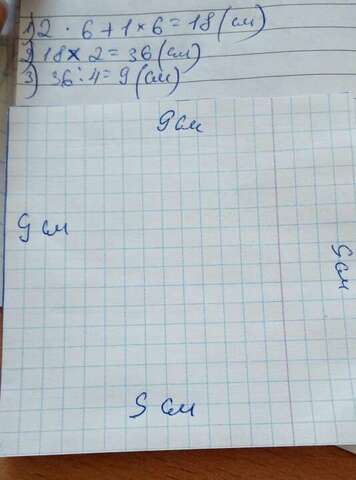 1) 2 · 6 + 1 × 6 = 18 (см)
2) 18 × 2 = 36 (см)
3) 36 : 4 = 9 (см)
9 см
9 см
9 см
9 см